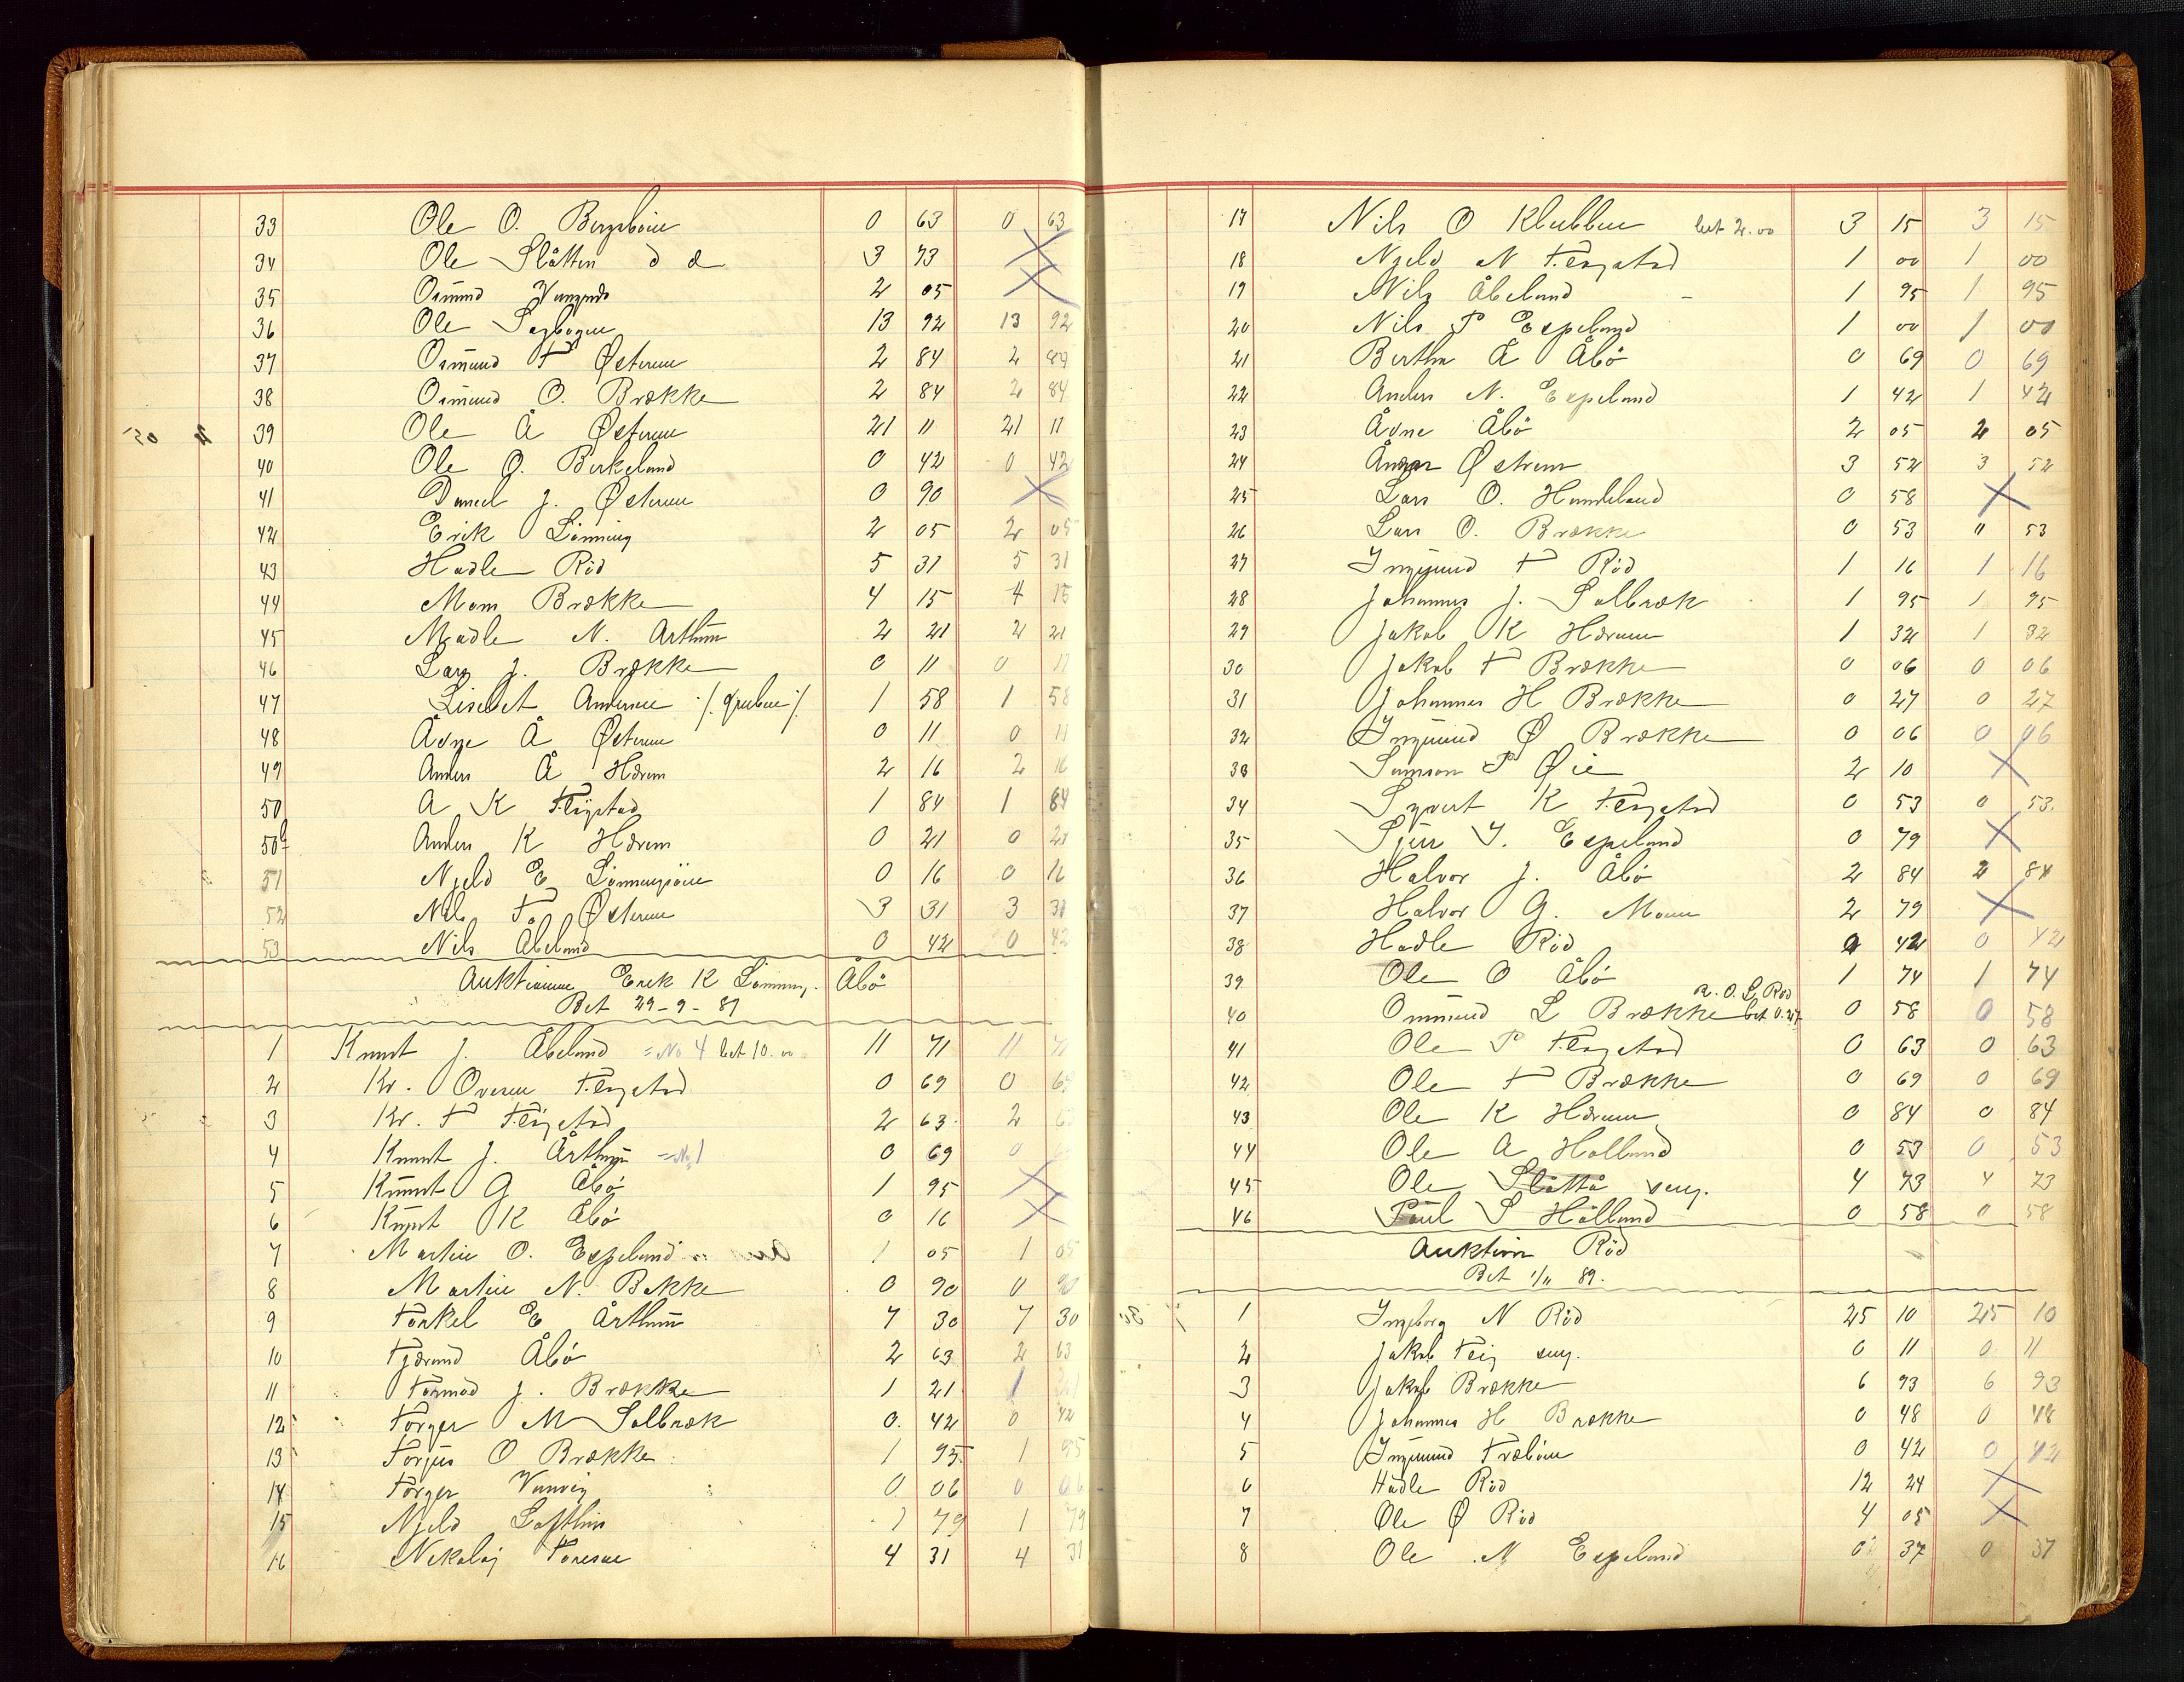 33 Ole O. 0 63 0 63
34 Ole Slåtten d æ 3 73
35 Osmund 2 05
36 Ole 13 92 13 92
37 Osmund T Østerem 2 84 2 84
38 Osmund O. Brække 2 84 2 84
39 Ole Å Østerem 21 11 21 11
40 Ole O. Birkeland 0 42 0 42
41 Daniel J. Østerem 0 90
42 Erik Lönning 2 05 2 05
43 Hadle Röd 5 31 5 31
44 Mons Brække 4 15 4 15
45 Madle N. Årthun 2 21 2 21
46 Lars J. Brække 0 11 0 11
47 Lisebet Andersen 1 58 1 58
48 Ådne Å Østerem 0 11 0 11
49 Anders Å Hærem 2 16 2 16
50 A K Fleystad 1 84 1 84
50 Anders K Hærem 0 21 0 21
51 Njeld E 0 16 0 16
52 Nils T Østerem 3 31 3 31
53 Nils Åbeland 0 42 0 42
Auktionen Erik K Lönning. Åbö
Bet 29-9-87
1 Knut J. Åbeland = No 4 bet 10.00 11 71 11 71
2 Kr. Overem Fleystad 0 69 0 69
3 Kr. T Fleystad 2 63 2 63
4 Knut J. Årthun = No 1 0 69 0
5 Knut G Åbö 1 95
6 Knut K Åbö 0 16
7 Martin O. Espeland 1 05 1 05
8 Martin N. Bække 0 90 0 90
9 Torkel E Årthun 7 30 7 30
10 Åbö 2 63 2 63
11 Tormod J. Brække 1 21 1 21
12 Torger M Solbræk 0 42 0 42
13 Torjus O Brække 1 95 1 95
14 Torger Vanvig 0 06 0 06
15 Njeld Lofthus 1 79 1 79
16 Nikolaj Toresen 4 31 4 31
17 Nils O Klubben bet 2.00 3 15 3 15
18 Njeld N Fleystad 1 00 1 00
19 Nils Åbeland 1 95 1 95
20 Nils P Espeland 1 00 1 00
21 Bertha Å Åbö 0 69 0 69
22 Anders N. Espeland 1 42 1 42
23 Ådne Åbö 2 05 2 05
24 Østrem 3 52 3 52
25 Lars O. Handeland 0 58
26 Lars O. Brække 0 53 " 53
27 Ingmund T Röd 1 16 1 16
28 Johannes J. Solbræk 1 95 1 95
29 Jakob K Hærem 1 32 1 32
30 Jakob T Brække 0 06 0 06
31 Johannes H Brække 0 27 0 27
32 Ingmund Ø Brække 0 06 0 06
33 Samson P Øie 2 10
34 Syvert K Fleystad 0 53 0 53
35 J. Espeland 0 79
36 Halvor J. Åbö 2 84 2 84
37 Halvor G. Moen 2 79
38 Hadle Röd 0 42 0 42
39 Ole O Åbö 1 74 1 74
R. O. L. Röd
40 Ommund L Brække bet 0.27 0 58 0 58
41 Ole P Fleystad 0 63 0 63
42 Ole T Brække 0 69 0 69
43 Ole K Hærem 0 84 0 84
44 Ole A Holland 0 53 0 53
45 Ole Slåttå 4 73 4 73
46 Paul S Hålland 0 58 0 58
Auktion Röd
Bet 1/11 89.
1 Ingeborg N Röd 25 10 25 10
2 Jakob 0 11 0 11
3 Jakob Brække 6 93 6 93
4 Johannes H Brække 0 48 0 48
5 Ingmund Træböen 0 42 0 42
6 Hadle Röd 12 24
7 Ole Ø Röd 4 05
8 Ole N Espeland 0 37 0 37